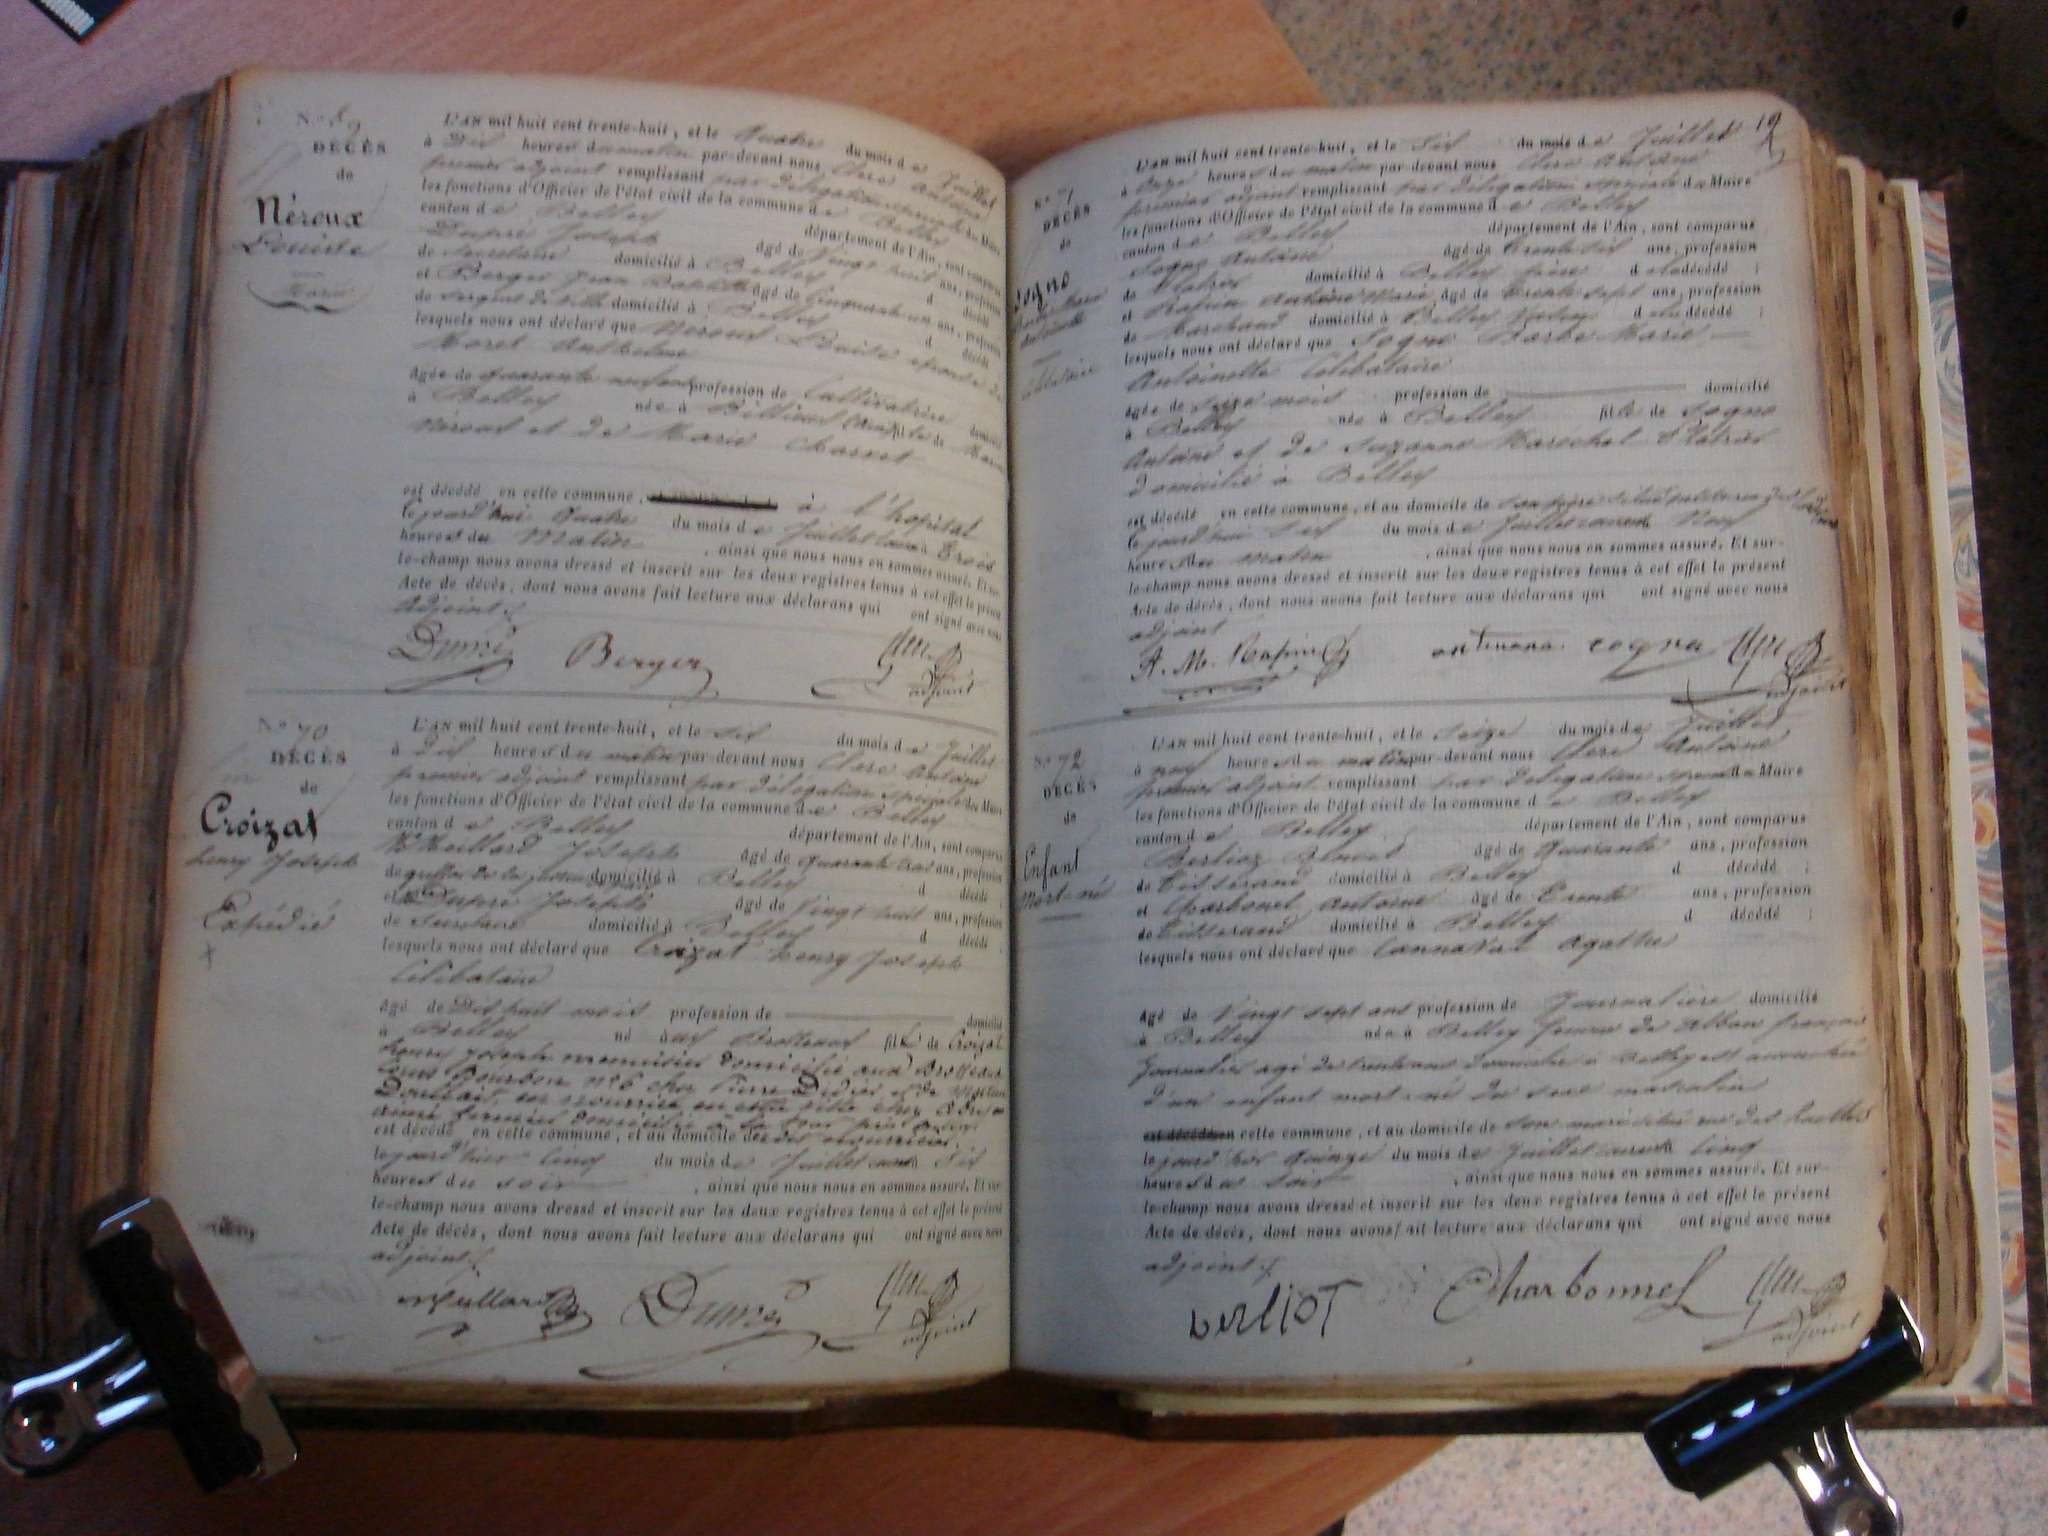 N° 69
DÉCÈS
de
Néroux
Louise
L'AN mil huit cent trente-huit, et le Quatre du mois de Juillet
à Dix heures du matin par-devant nous Clerc Antoine
premier adjoint remplissant par délégation spéciale du Maire
les fonctions d'Officier de l'état civil de la commune de Belley
canton de Belley département de l'Ain, sont comparus
Dupré Joseph âgé de Vingt huit ans, profession
de Secrétaire domicilié à Belley d décédé
et Berger Jean Baptiste âgé de Cinquante un ans, profession
de Sergent de Ville domicilié à Belley d décédé
lesquels nous ont déclaré que Néroux Louise épouse de
Moret Anthelme
âgée de quarante neuf ans profession de Cultivatrice domicilié
à Belley née à fille de
Néroux et de Marie Charvet
est décédé en cette commune, à l'hopital
le jourd'hui Quatre du mois de Juillet courant Trois
heures du Matin, ainsi que nous nous en sommes assuré. Et sur-
le-champ nous avons dressé et inscrit sur les deux registres tenus à cet effet le présent
Acte de décès, dont nous avons fait lecture aux déclarans qui ont signé avec nous
adjoint
Dupré Berger
adjoint
N° 70
DÉCÈS
de
Croizat
henry Joseph
Expédié
L'AN mil huit cent trente-huit, et le Six du mois de Juillet
à Dix heures du matin par-devant nous Clerc Antoine
premier adjoint remplissant par délégation spéciale du Maire
les fonctions d'Officier de l'état civil de la commune de Belley
canton de Belley département de l'Ain, sont comparus
Joseph âgé de quarante trois ans, profession
de domicilié à Belley d décédé ;
et Dupré Joseph âgé de Vingt huit ans, profession
de Secrétaire domicilié à Belley d décédé ;
lesquels nous ont déclaré que Croizat henry Joseph
Célibataire
âgé de Dix huit mois profession de domicilié
à Belley né aux Brotteaux fils de Croizat
henry joseph menuisier domicilié aux Brotteaux
cours Bourbon n° 6 chez Pierre Didier et de
est décédé en cette commune, et au domicile de
le jourd'hier Cinq du mois de Juillet courant Six
heures du soir, ainsi que nous nous en sommes assuré. Et sur-
le-champ nous avons dressé et inscrit sur les deux registres tenus à cet effet le présent
Acte de décès, dont nous avons fait lecture aux déclarans qui ont signé avec nous
adjoint
Dupré
adjoint
19
N° 71
DÉCÈS
de
Sogno
L'AN mil huit cent trente-huit, et le Six du mois de Juillet
à Onze heures du matin par-devant nous Clerc Antoine
premier adjoint remplissant par délégation spéciale du Maire
les fonctions d'Officier de l'état civil de la commune de Belley
canton de Belley département de l'Ain, sont comparus
Sogno Antoine âgé de Trente six ans, profession
de Platrier domicilié à Belley père de la décédé ;
et Rapin Antoine Marie âgé de Trente sept ans, profession
de Marchand domicilié à Belley Voisin de la décédé ;
lesquels nous ont déclaré que Sogno Barbe Marie
Antoinette Célibataire
âgée de Seize mois profession de domicilié
à Belley née à Belley fille de Sogno
Antoine et de Suzanne Marechal Platrier
domicilié à Belley
est décédé en cette commune, et au domicile de son père
le jourd'hui Six du mois de Juillet courant Neuf
heures du matin, ainsi que nous nous en sommes assuré. Et sur-
le-champ nous avons dressé et inscrit sur les deux registres tenus à cet effet le présent
Acte de décès, dont nous avons fait lecture aux déclarans qui ont signé avec nous
adjoint
A. M. Rapin
adjoint
N° 72
DÉCÈS
de
Enfant
Mort-né
L'AN mil huit cent trente-huit, et le Seize du mois de Juillet
à neuf heures du matin par-devant nous Clerc Antoine
premier adjoint remplissant par délégation spéciale du Maire
les fonctions d'Officier de l'état civil de la commune de Belley
canton de Belley département de l'Ain, sont comparus
Berlioz Benoit âgé de Quarante ans, profession
de Tisserand domicilié à Belley d décédé ;
et Charbonel Antoine âgé de Trente ans, profession
de Tisserand domicilié à Belley d décédé ;
lesquels nous ont déclaré que Cannaval Agathe
âgé de Vingt sept ans profession de Journalière domicilié
à Belley née à Belley femme de Alban françois
Journalier agé de trente ans domicilié à Belley est accouchée
d'un enfant mort-né du sexe masculin
est décédé en cette commune, et au domicile de son mari situé rue des
le jourd'hier Quinze du mois de Juillet courant Cinq
heures du soir, ainsi que nous nous en sommes assuré. Et sur-
le-champ nous avons dressé et inscrit sur les deux registres tenus à cet effet le présent
Acte de décès, dont nous avons fait lecture aux déclarans qui ont signé avec nous
adjoint
berliot Charbonnel
adjoint